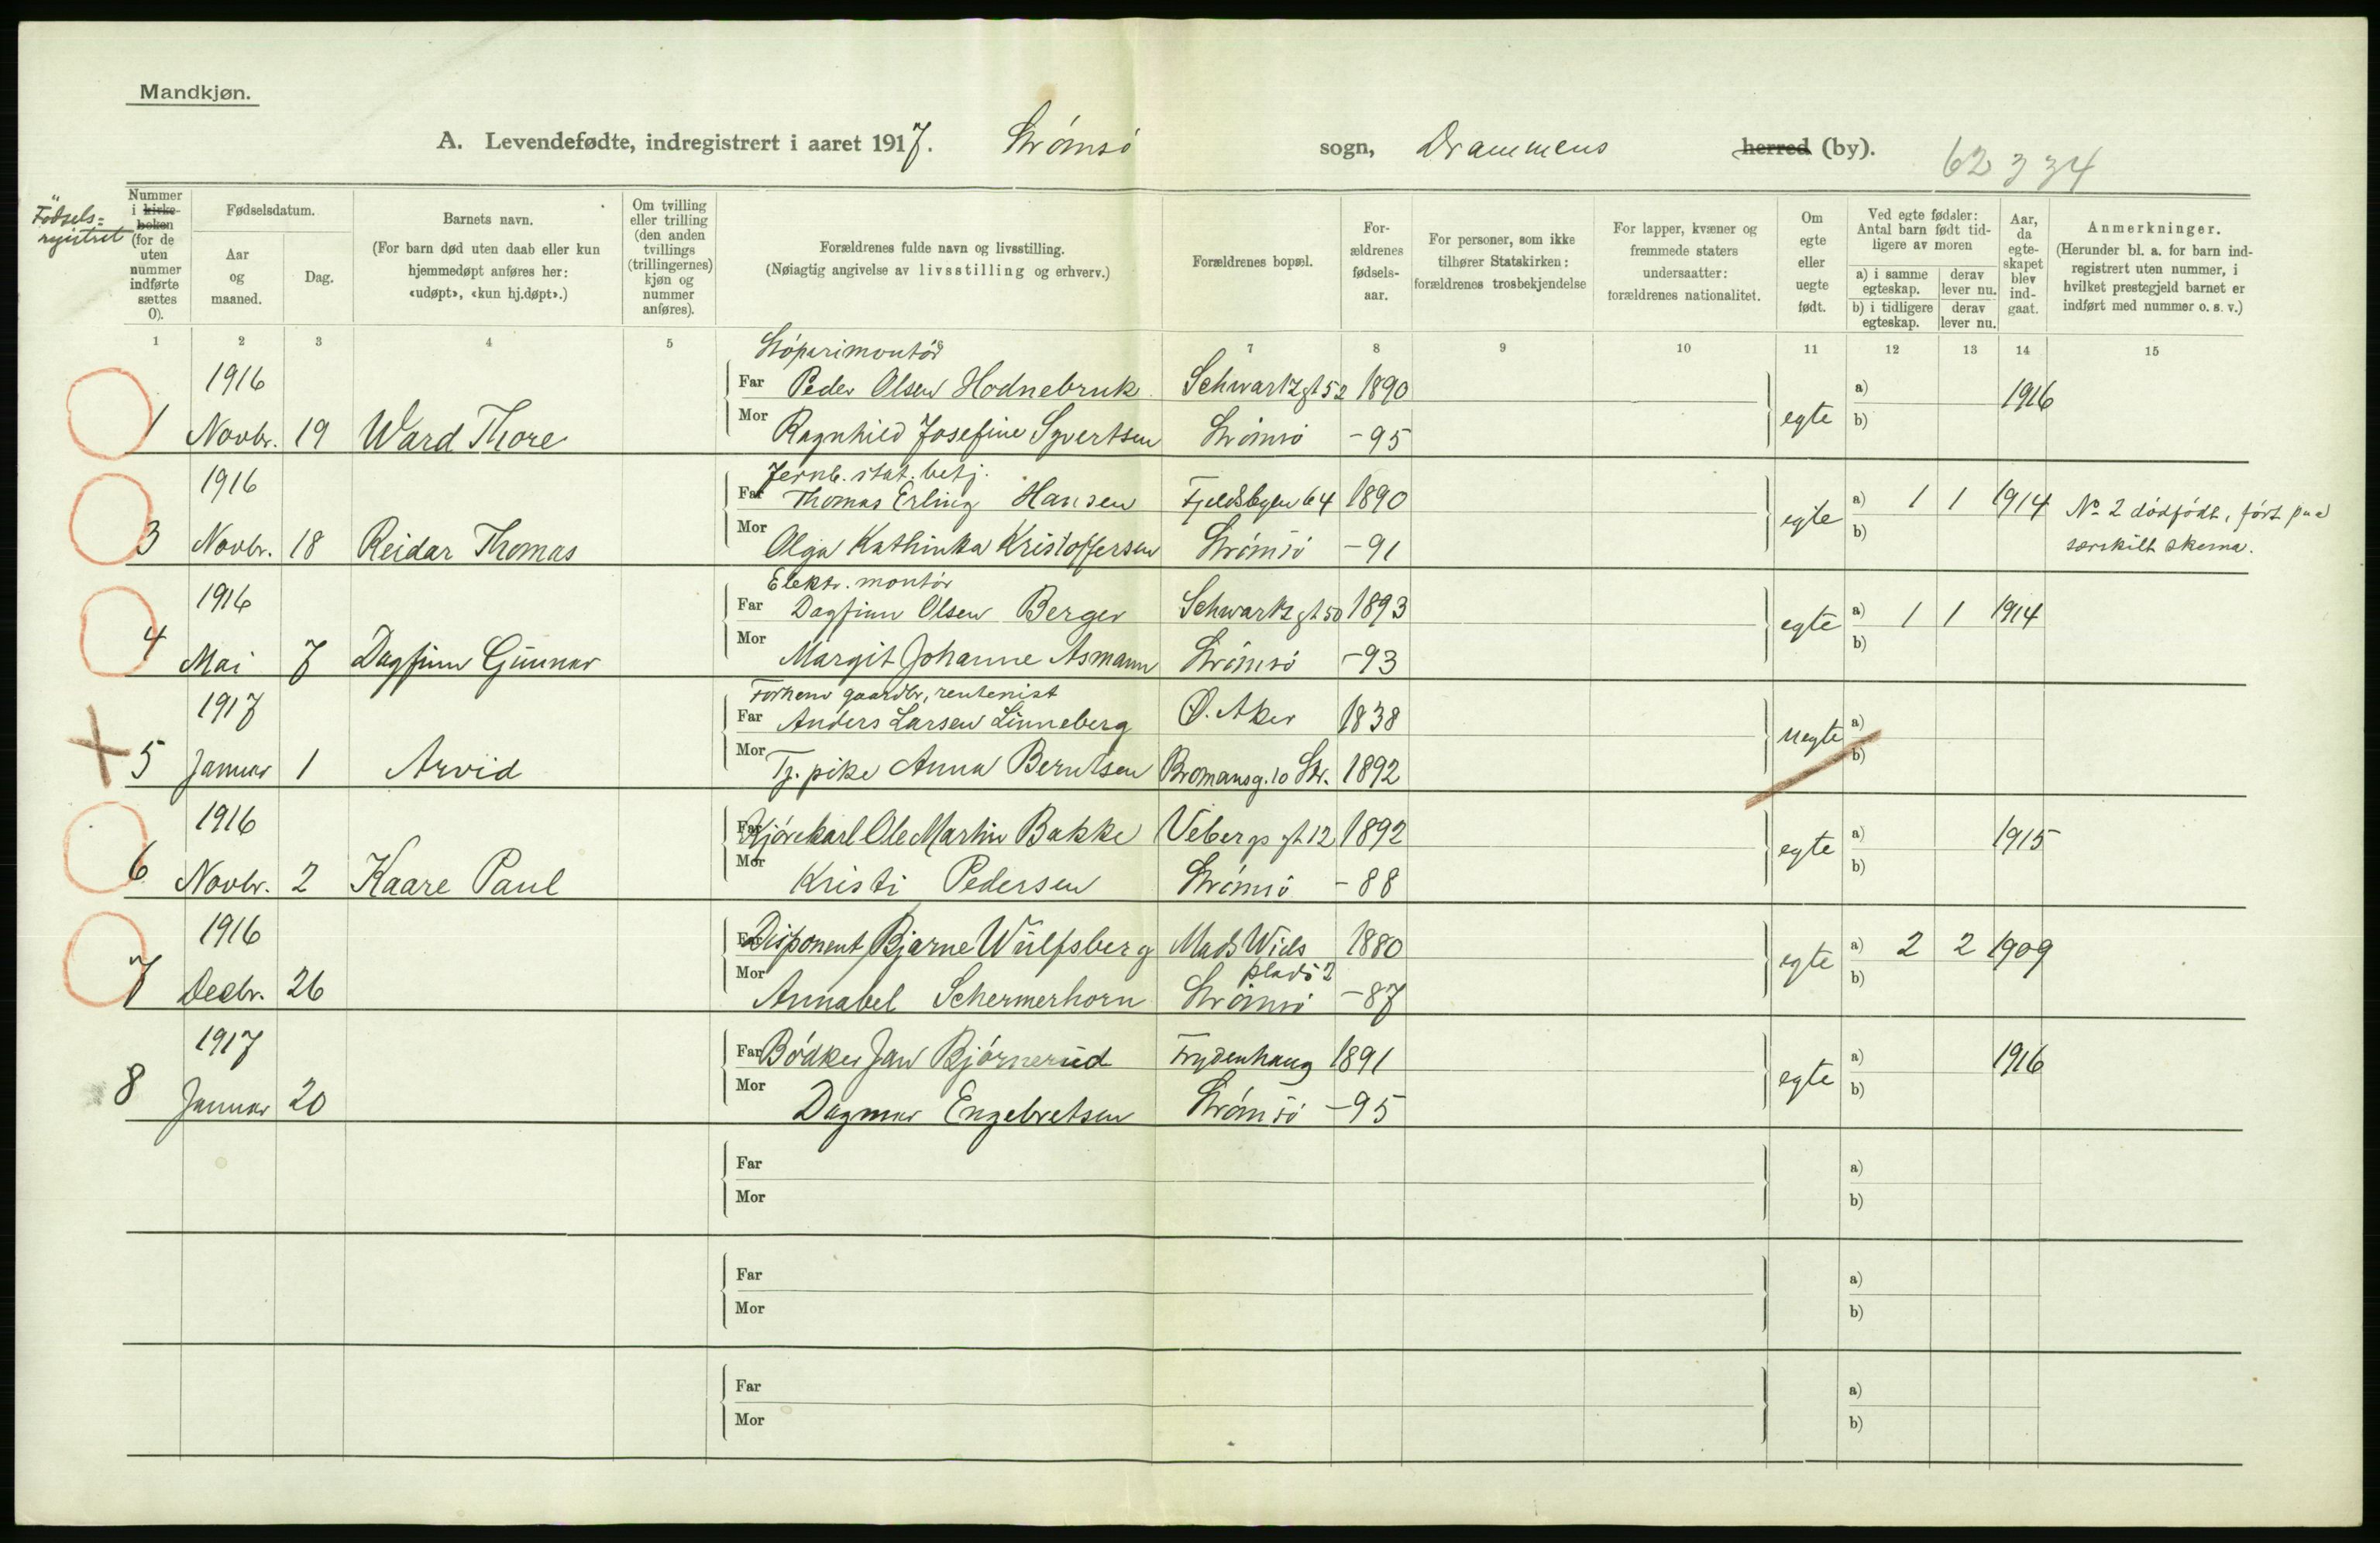 Mandkjøn.
A. Levendefødte, indregistrert i aaret 1917. Strømsø sogn, Drammens herred (by). 62 334
Fødsels=
registret
Nummer
i kirke-
boken
(for de
uten
nummer
indførte
sættes
0).
Fødselsdatum.
Aar
og
maaned.
Dag.
Barnets navn.
(For barn død uten daab eller kun
hjemmedøpt anføres her:
«udøpt», «kun hj.døpt».)
Om tvilling
eller trilling
(den anden
tvillings
(trillingernes)
kjøn og
nummer
anføres).
Forældrenes fulde navn og livsstilling.
(Nøiagtig angivelse av livsstilling og erhverv.)
Forældrenes bopæl.
For-
ældrenes
fødsels-
aar.
For personer, som ikke
tilhører Statskirken:
forældrenes trosbekjendelse
For lapper, kvæner og
fremmede staters
undersaatter:
forældrenes nationalitet.
Om
egte
eller
uegte
født.
Ved egte fødsler:
Antal barn født tid-
ligere av moren
a) i samme
egteskap.
derav
lever nu.
b) i tidligere
egteskap.
derav
lever nu.
Aar,
da
egte-
skapet
blev
ind-
gaat.
Anmerkninger.
(Herunder bl. a. for barn ind-
registrert uten nummer, i
hvilket prestegjeld barnet er
indført med nummer o. s. v.)
1 2 3 4 5 7 8 9 10 11 12 13 14 15
Støperimontør
1916 Far Peder Olsen Hodnebruk Schwartzgt 52 1890 a) 1916
1 Novbr. 19 Ward Thore Mor Ragnhild Josefine Syvertsen Strømsø -95 egte b)
Jernb. stat. betj.
1916 Far Thomas Erling Hansen Fjeldsbyen 64 1890 a) 1 1 1914 No 2 dødfødt, ført paa
3 Novbr. 18 Reidar Thomas Mor Olga Kathinka Kristoffersen Strømsø -91 egte b) særskilt skema.
Elektr. montør
1916 Far Dagfinn Olsen Berger Schwartzgt 50 1893 a) 1 1 1914
4 Mai 7 Dagfinn Gunnar Mor Margit Johanne Asmann Strømsø -93 egte b)
Forhenv gaardbr, rentenist
1917 Far Anders Larsen Linneberg Ø. Aker 1838 a)
5 Januar 1 Arvid Mor Tj. pike Anna Berntsen Bromansg. 10 Str. 1892 uegte b)
1916 Far Kjørekarl Ole Martin Bakke Vebergs gt 12 1892 a) 1915
6 Novbr. 2 Kaare Paul Mor Kristi Pedersen Strømsø -88 egte b)
1916 Far Disponent Bjarne Wulfsberg Mads Wiels 1880 a) 2 2 1909
plads 2
7 Decbr. 26 Mor Annabel Schermerhorn Strømsø -87 egte b)
1917 Far Bødker Jan Bjørnerud Frydenhaug 1891 a) 1916
8 Januar 20 Mor Dagmar Engebretsen Strømsø -95 egte b)
Far a)
Mor b)
Far a)
Mor b)
Far a)
Mor b)